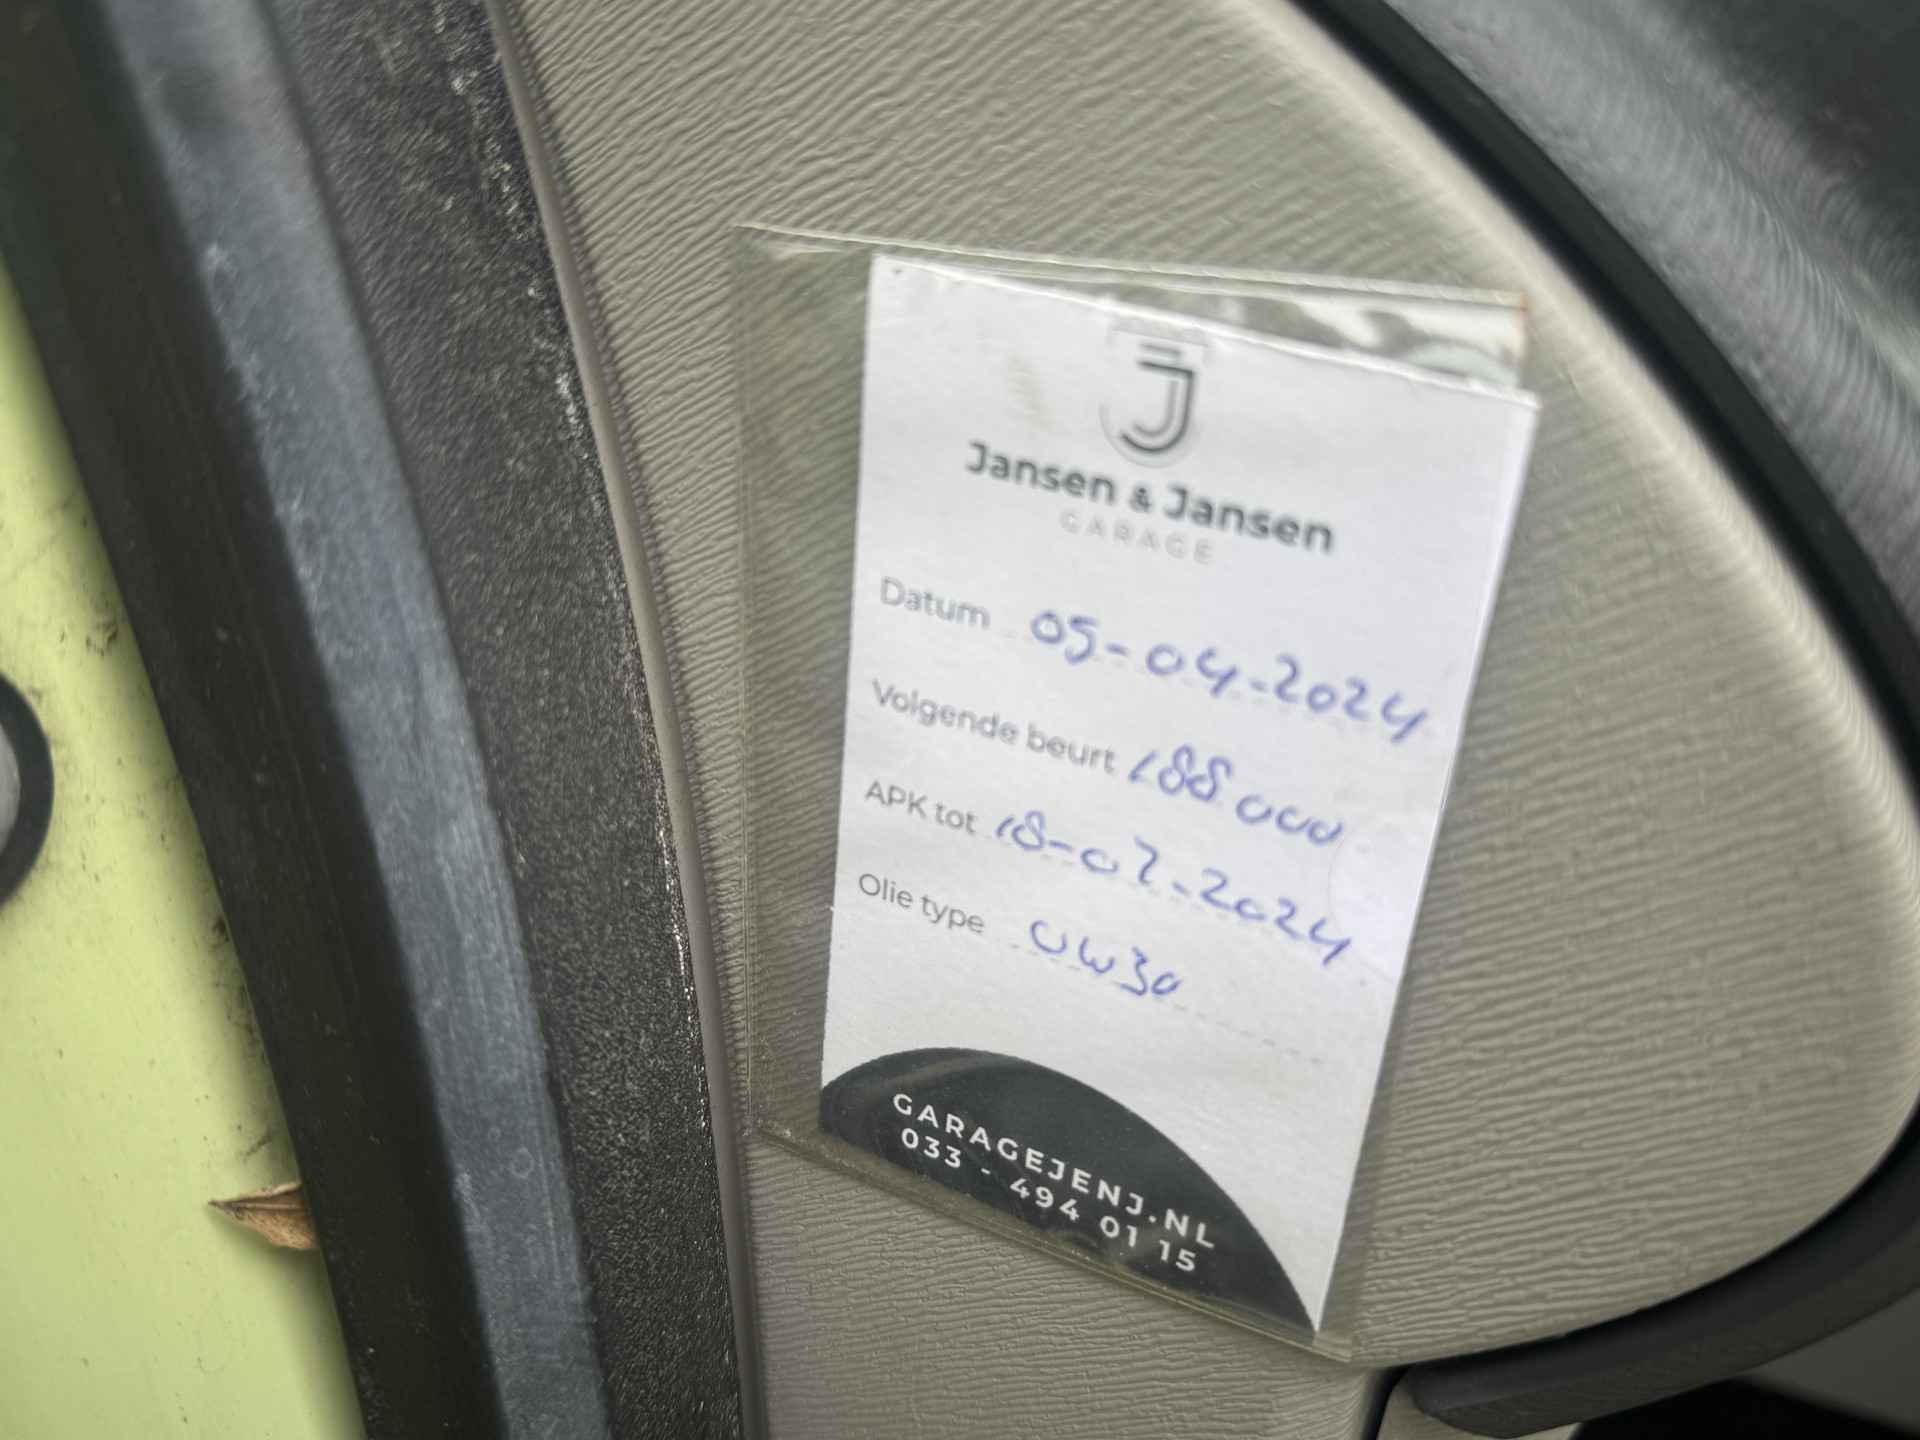 J
Jansen & Jansen
GARAGE
Datum 05-04-2024
Volgende beurt 188000
APK tot 18-07-2024
Olie type 0W30
GARAGEJENJ.NL
033 - 494 01 15